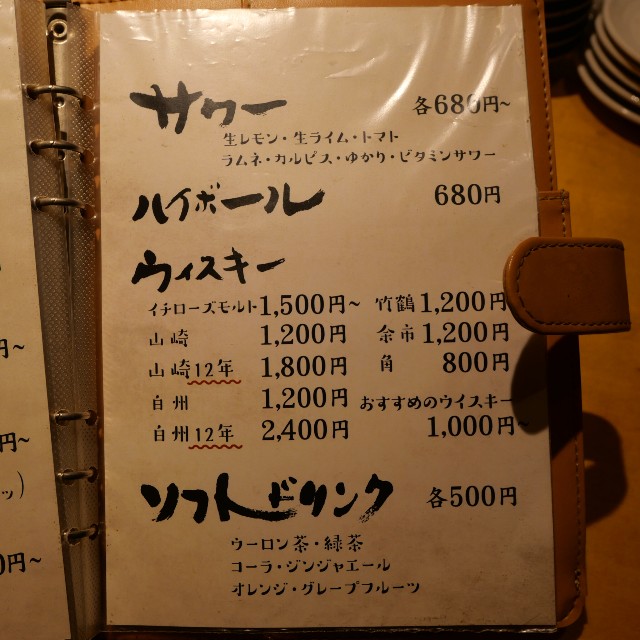 サワー 各680円~
生レモン・生ライム・トマト
ラムネ・カルピス・ゆかり・ビタミンサワー
ハイボール 680円
ウィスキー
イチローズモルト 1,500円~ 竹鶴 1,200円
山崎 1,200円 余市 1,200円
山崎12年 1,800円 角 800円
白州 1,200円 おすすめのウイスキー
白州12年 2,400円 1,000円~
ソフトドリンク 各500円
ウーロン茶・緑茶
コーラ・ジンジャエール
オレンジ・グレープフルーツ
円~
円~
ッ)
0円~